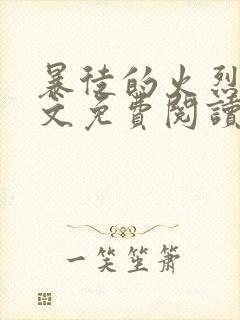 暴徒的火烈
文免費閱讀
一笑笙簫